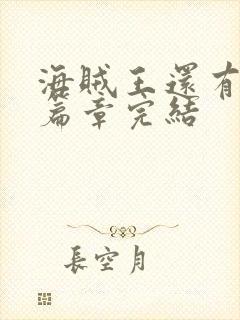 海賊王還有
篇章完結
長空月